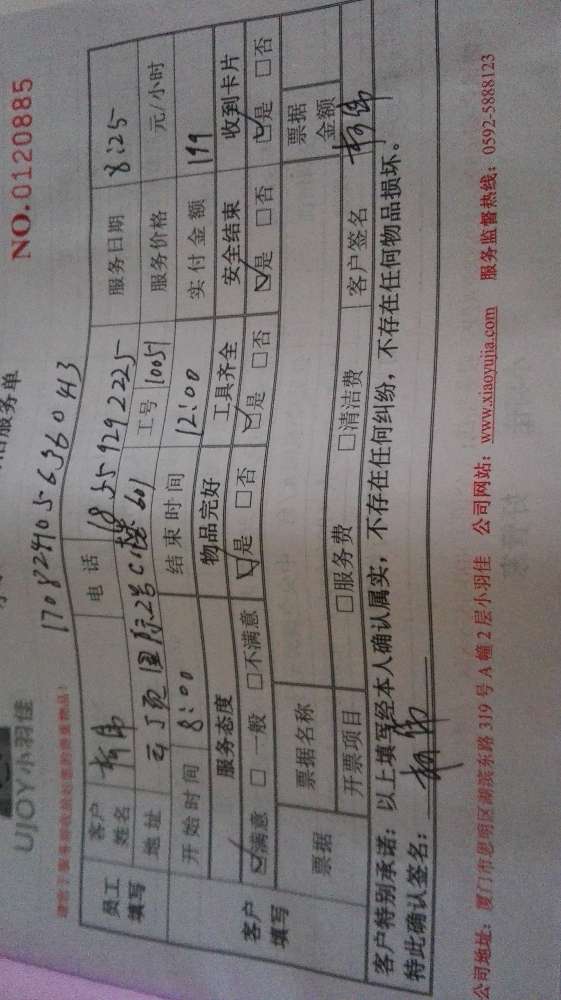 UJOY小羽佳
NO.0120885
员工填写
客户姓名
电话 18559292225
服务日期 8:25
地址
国际2号C楼601
工号 10051
服务价格 元/小时
开始时间 8:00
结束时间 12:00
实付金额 199
客户填写
服务态度 物品完好 工具齐全 安全结束 收到卡片
☑满意 □一般 □不满意 ☑是 □否 ☑是 □否 ☑是 □否 ☑是 □否
票据 票据名称 票据金额
开票项目 □服务费 □清洁费 客户签名
客户特别承诺：以上填写经本人确认属实，不存在任何纠纷，不存在任何物品损坏。
特此确认签名：
公司地址：厦门市思明区湖滨东路 319 号 A 幢 2 层小羽佳 公司网站：www.xiaoyujia.com 服务监督热线：0592-5888123